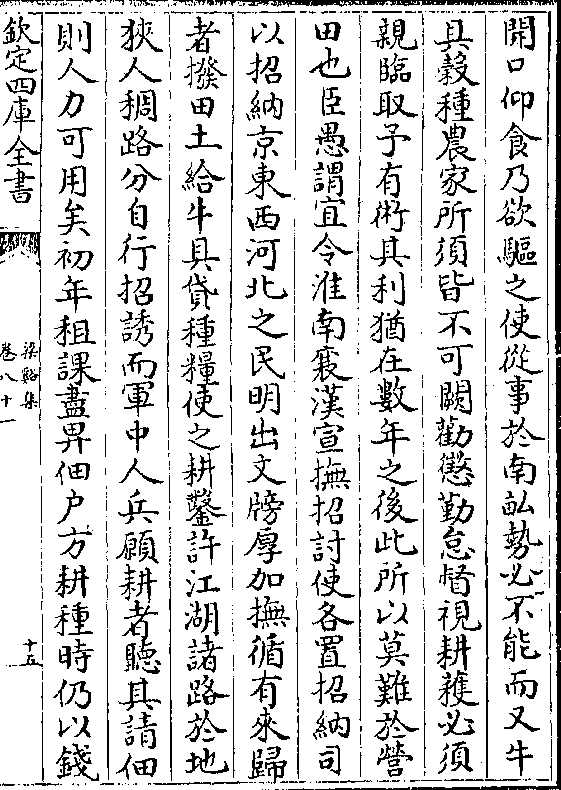 開口仰食乃欲驅之使從事於南畝勢必不能而又牛
具穀種農家所須皆不可闕勸懲勤怠督視耕穫必須
親臨取予有術其利猶在數年之後此所以莫難於營
田也臣愚謂宜令淮南襄漢宣撫招討使各置招納司
以招納京東西河北之民明出文牓厚加撫循有來歸
者撥田土給牛具貸種糧使之耕鑿許江湖諸路於地
狹人稠路分自行招誘而軍中人兵願耕者聽其請佃
則人力可用矣初年租課盡畀佃户方耕種時仍以錢
欽定四庫全書
梁谿集
卷八十一
十五